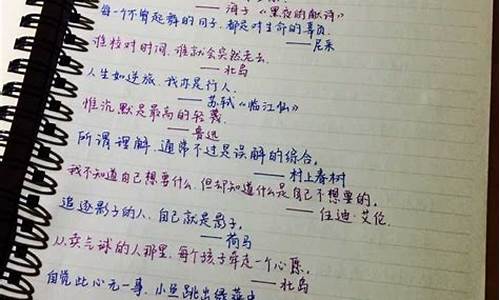 ——海子《黑夜的献诗》
每一个不曾起舞的日子,都是对生命的辜负。
——尼采
谁校对时间,谁就会突然老去。
——北岛
人生如逆旅,我亦是行人。
——苏轼《临江仙》
惟沉默是最高的轻蔑。
——鲁迅
所谓理解,通常不过是误解的综合。
——村上春树
我不知道自己想要什么,但却知道什么是自己不想要的。
——任迪·艾伦
追逐影子的人,自己就是影子。
——荷马
从卖气球的人那里,每个孩子牵走一个心愿。
——北岛
自觉此心无一事,小鱼跳出绿萍中